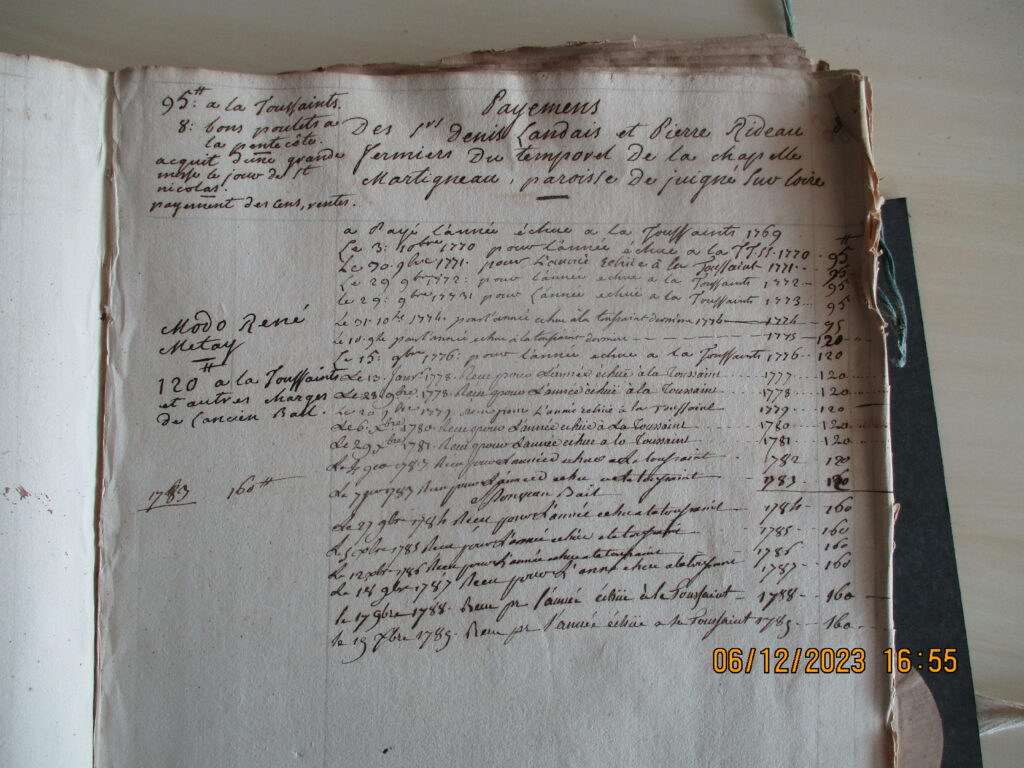 95ᵗᵗ: a la Toussaints.
8: bons poulets a
la pentecôte.
acquit d'une grande
messe le jour de St
nicolas.
payement des cens, rentes.
Payemens
Des Srs Denis Landais et Pierre Rideau
fermiers Du temporel De la chapelle
Martigneau, paroisse De juigné Sur loire
8
a Payé l'année échue a la Toussaints 1769
Le 3: Xobre 1770 pour l'année échue a la TTSS 1770. 95ᵗᵗ
Le 30. 9bre 1771. pour L'année Echue à la Toussaint 1771.. 95
Le 29 9bre 1772: pour l'année échue a la Toussaints 1772.. 95
le 29: 9bre 1773: pour L'année échue a la Toussaints 1773.. 95
Le 31. 10bre 1774. pour l'année echue à la toussaint derniere 1774 1774 .. 95
Le 10. 9bre pour l'année echue à la toussaint derniere 1775 .. 120
Le 15: 9bre 1776: pour l'année échue a la Toussaints 1776 .. 120
Modo René
Metay
120ᵗᵗ a la Toussaints
et autres charges
de l'ancien Bail.
Le 13. Janvr 1778. Reçu pour L'année echue à la toussaint 1777 .. 120
Le 28 9bre 1778 Reçu pour L'année échue à la Toussaint 1778 .. 120
1779 .. 120
Le 6. Xbre 1780 Reçu pour L'année echue à La Toussaint 1780 .. 120
Le 29 Xbre 1781. Reçu pour L'année echue a la Toussaint 1781 .. 120
Reçu pour L'année echue a La toussaint 1782 120
1783 160ᵗᵗ
Le 7 1783 Reçu pour L'année echue a la toussaint 1783 120
Nouveau Bail
Le 27 9bre 1784 Reçu pour L'année echue a la toussaint 1784 160
Le 5 Xbre 1785 Reçu pour L'année echue a la toussaint 1785 .. 160
Le 12 Xbre 1786 Reçu pour L'année echue a la toussaint 1786 .. 160
Le 18 9bre 1787 Reçu pour L'année echue a la toussaint 1787 .. 160
le 17 9bre 1788. Reçu pr l'année échue à la Toussaint 1788 .. 160
le 19 Xbre 1789. Reçu pr l'année échue a la Toussaint 1789 .. 160
06/12/2023 16:55